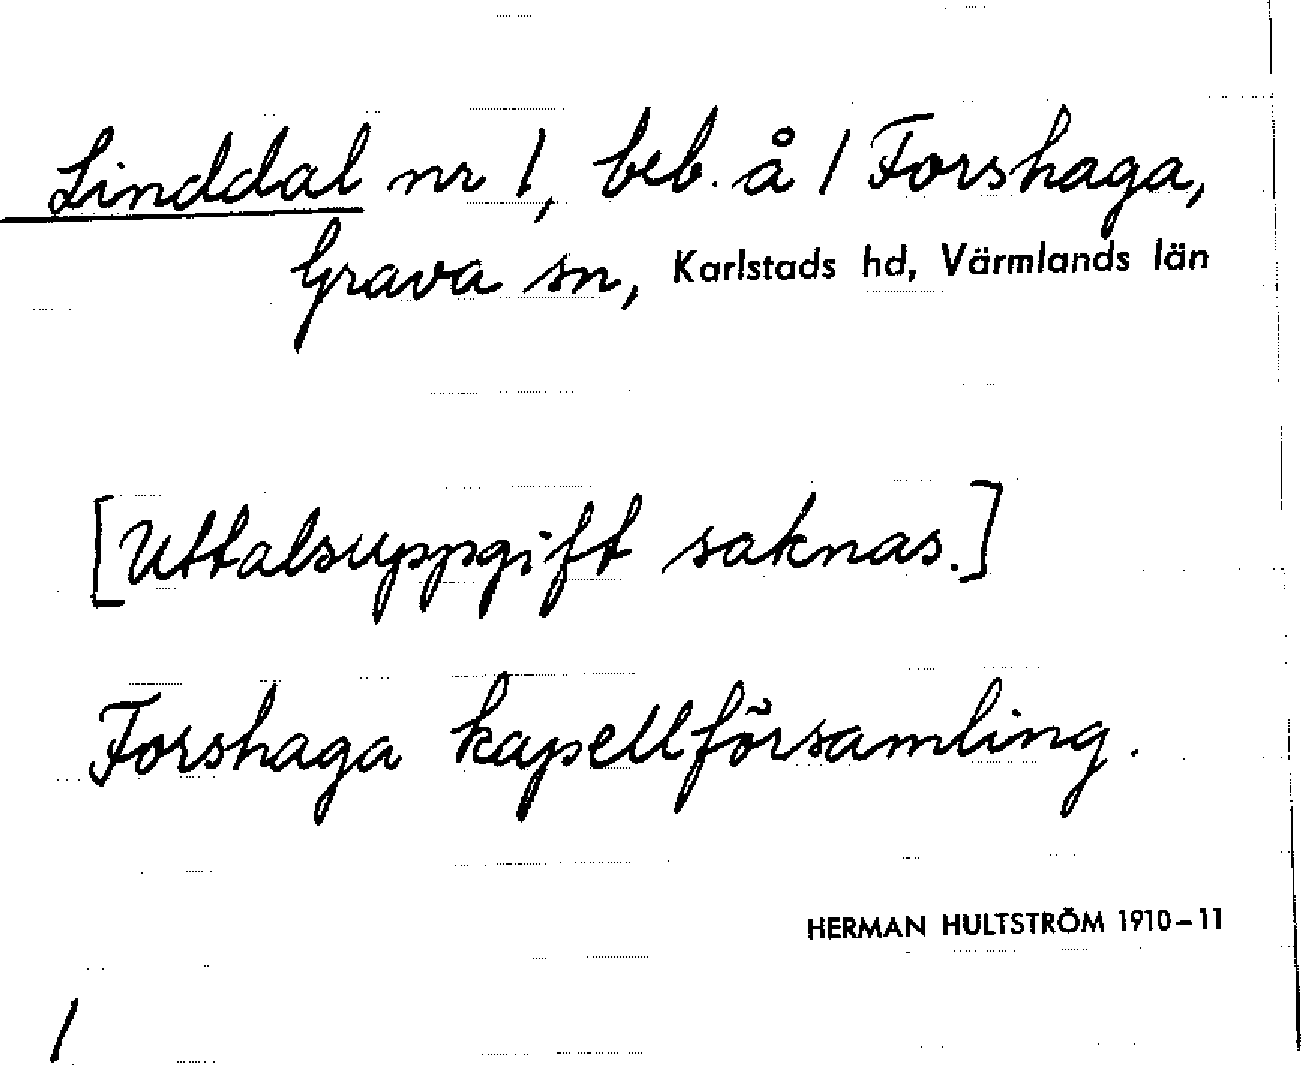 Linddal nr 1, beb. å 1 Forshaga,
Grava sn, Karlstads hd, Värmlands län
[Uttalsuppgift saknas.]
Forshaga kapellförsamling.
HERMAN HULTSTRÖM 1910-11
/